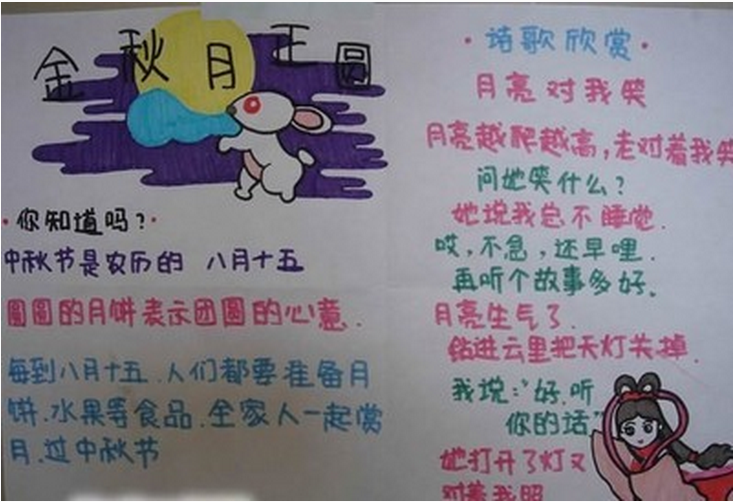 金秋月正圆
·你知道吗?·
中秋节是农历的 八月十五
圆圆的月饼表示团圆的心意.
每到八月十五.人们都要准备月
饼.水果等食品.全家人一起赏
月.过中秋节
·诗歌欣赏·
月亮对我笑
月亮越爬越高,老对着我笑
问她笑什么?
她说我总不睡觉.
哎,不急,还早哩.
再听个故事多好.
月亮生气了.
钻进云里把天灯关掉.
我说:“好.听
你的话”
她打开了灯又
对着我照